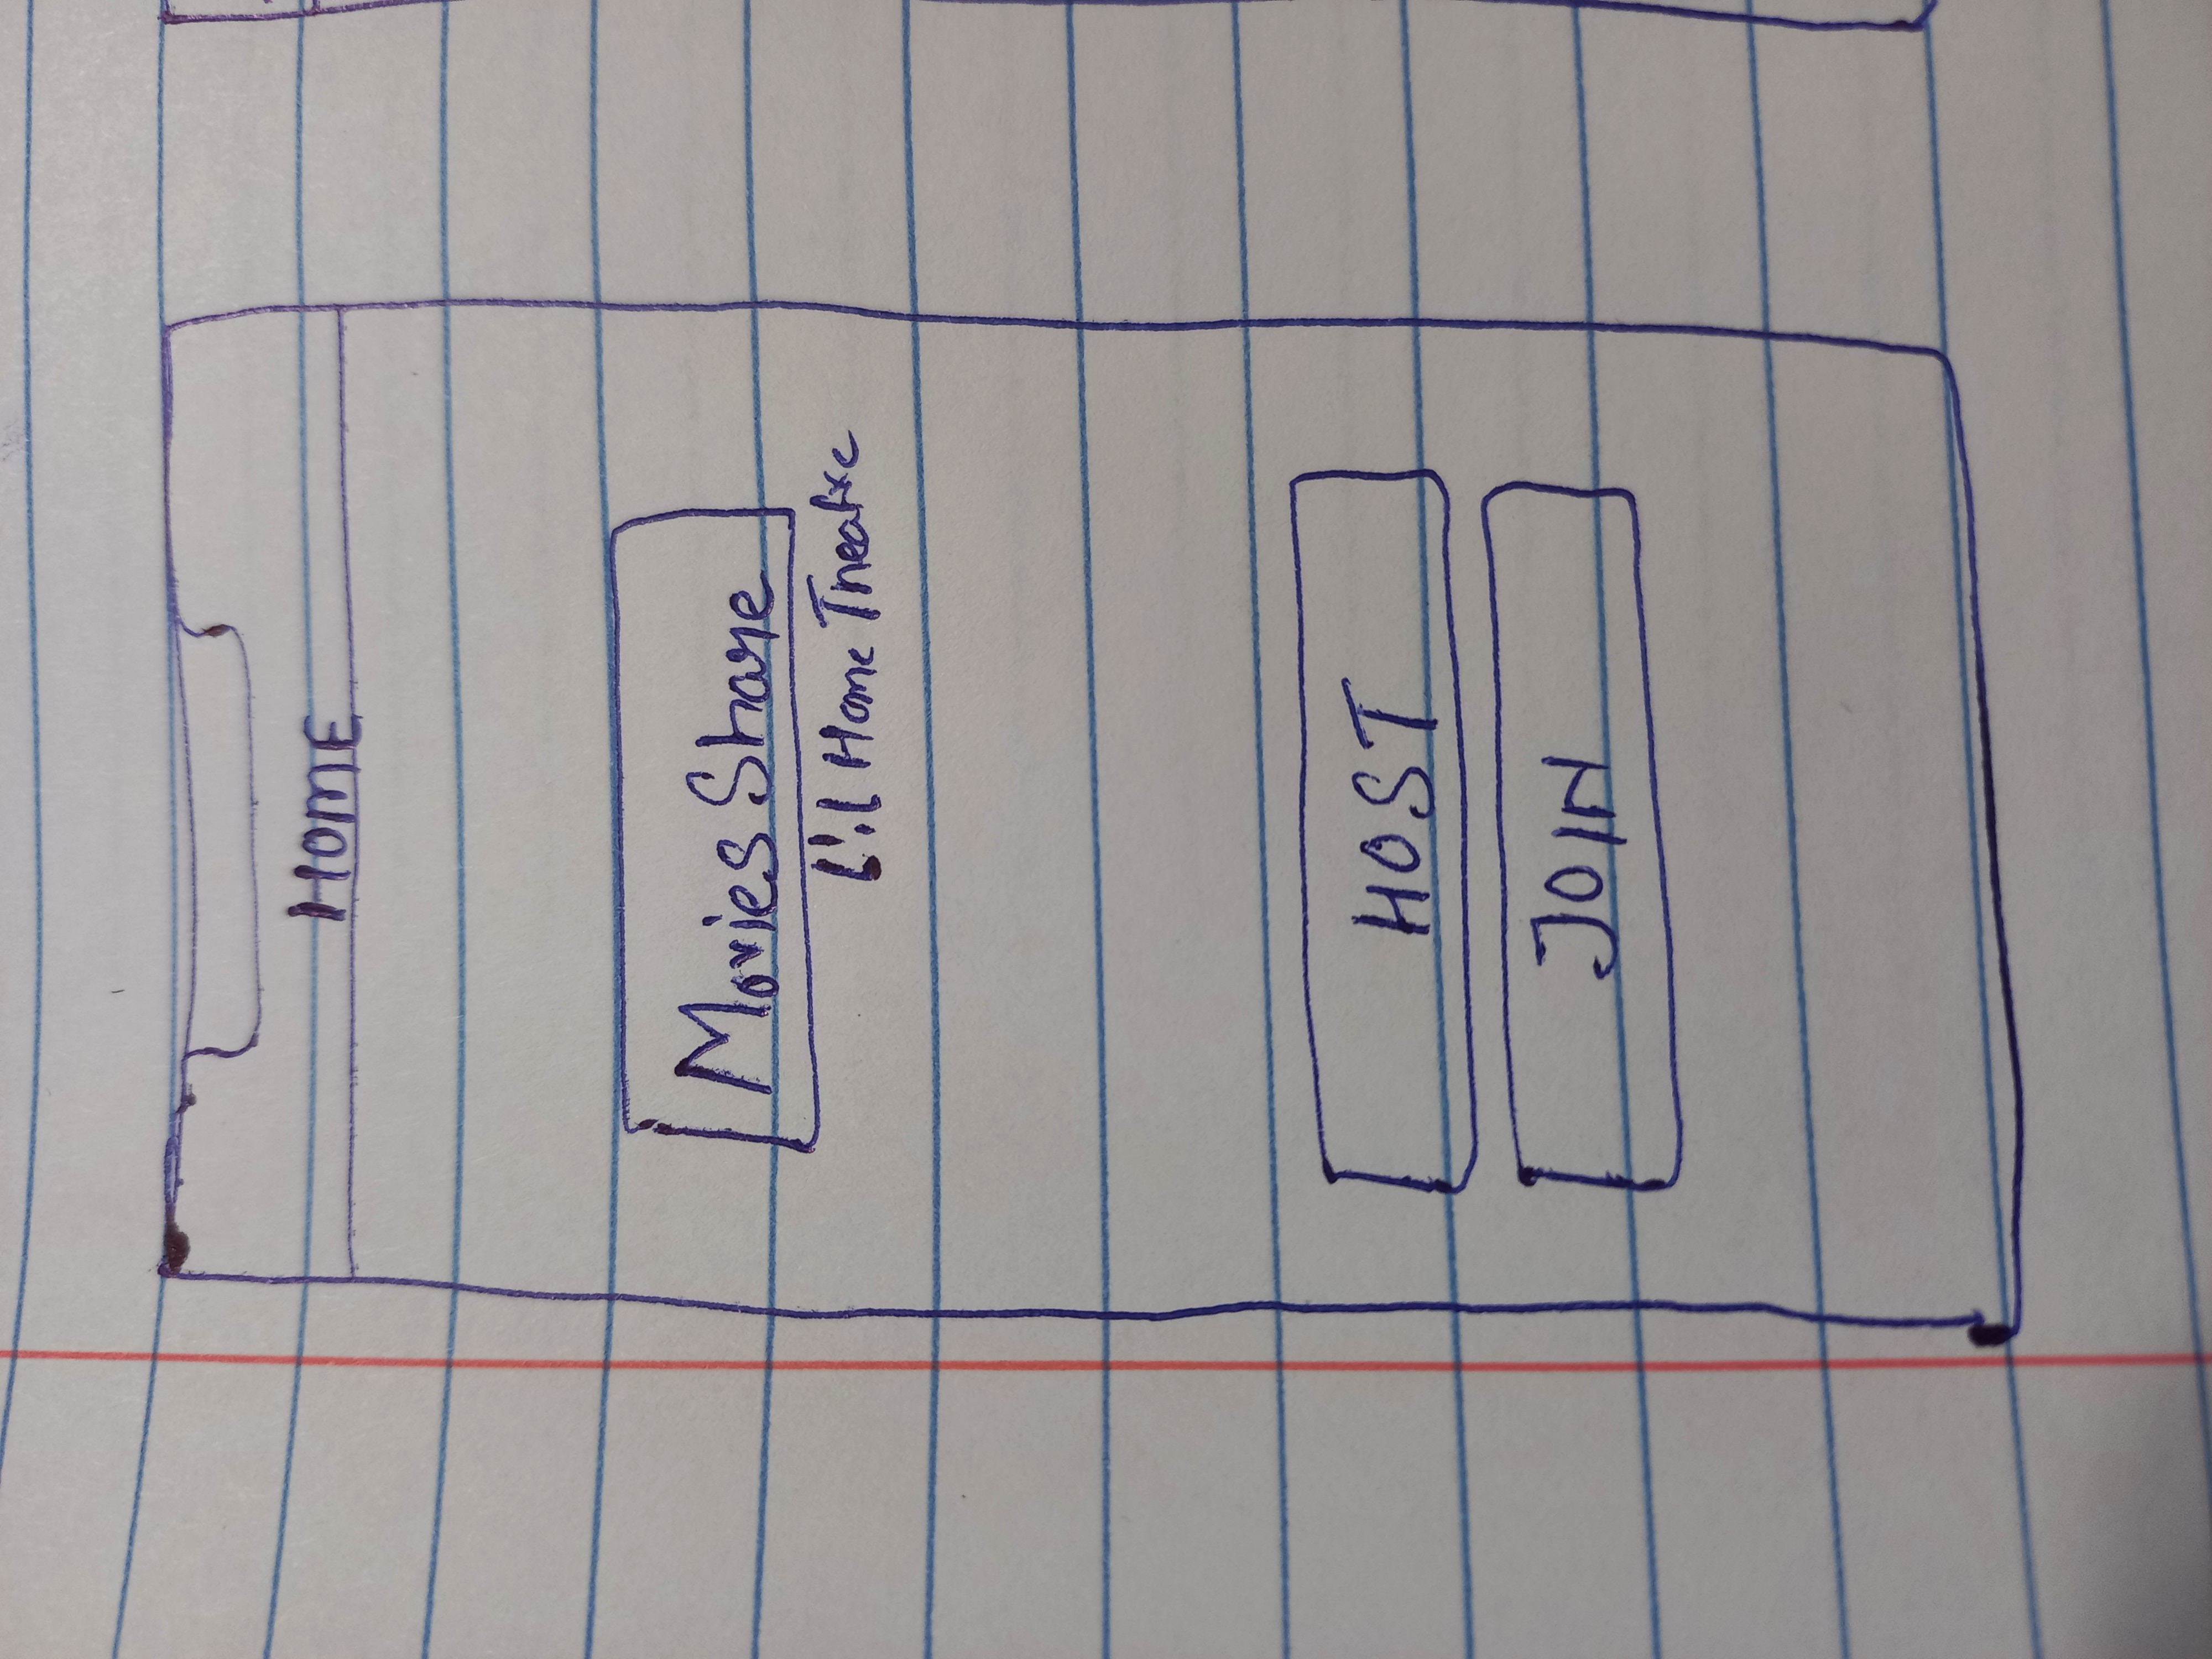 HOME
Movies Share
Home Theatre
HOST
JOIN